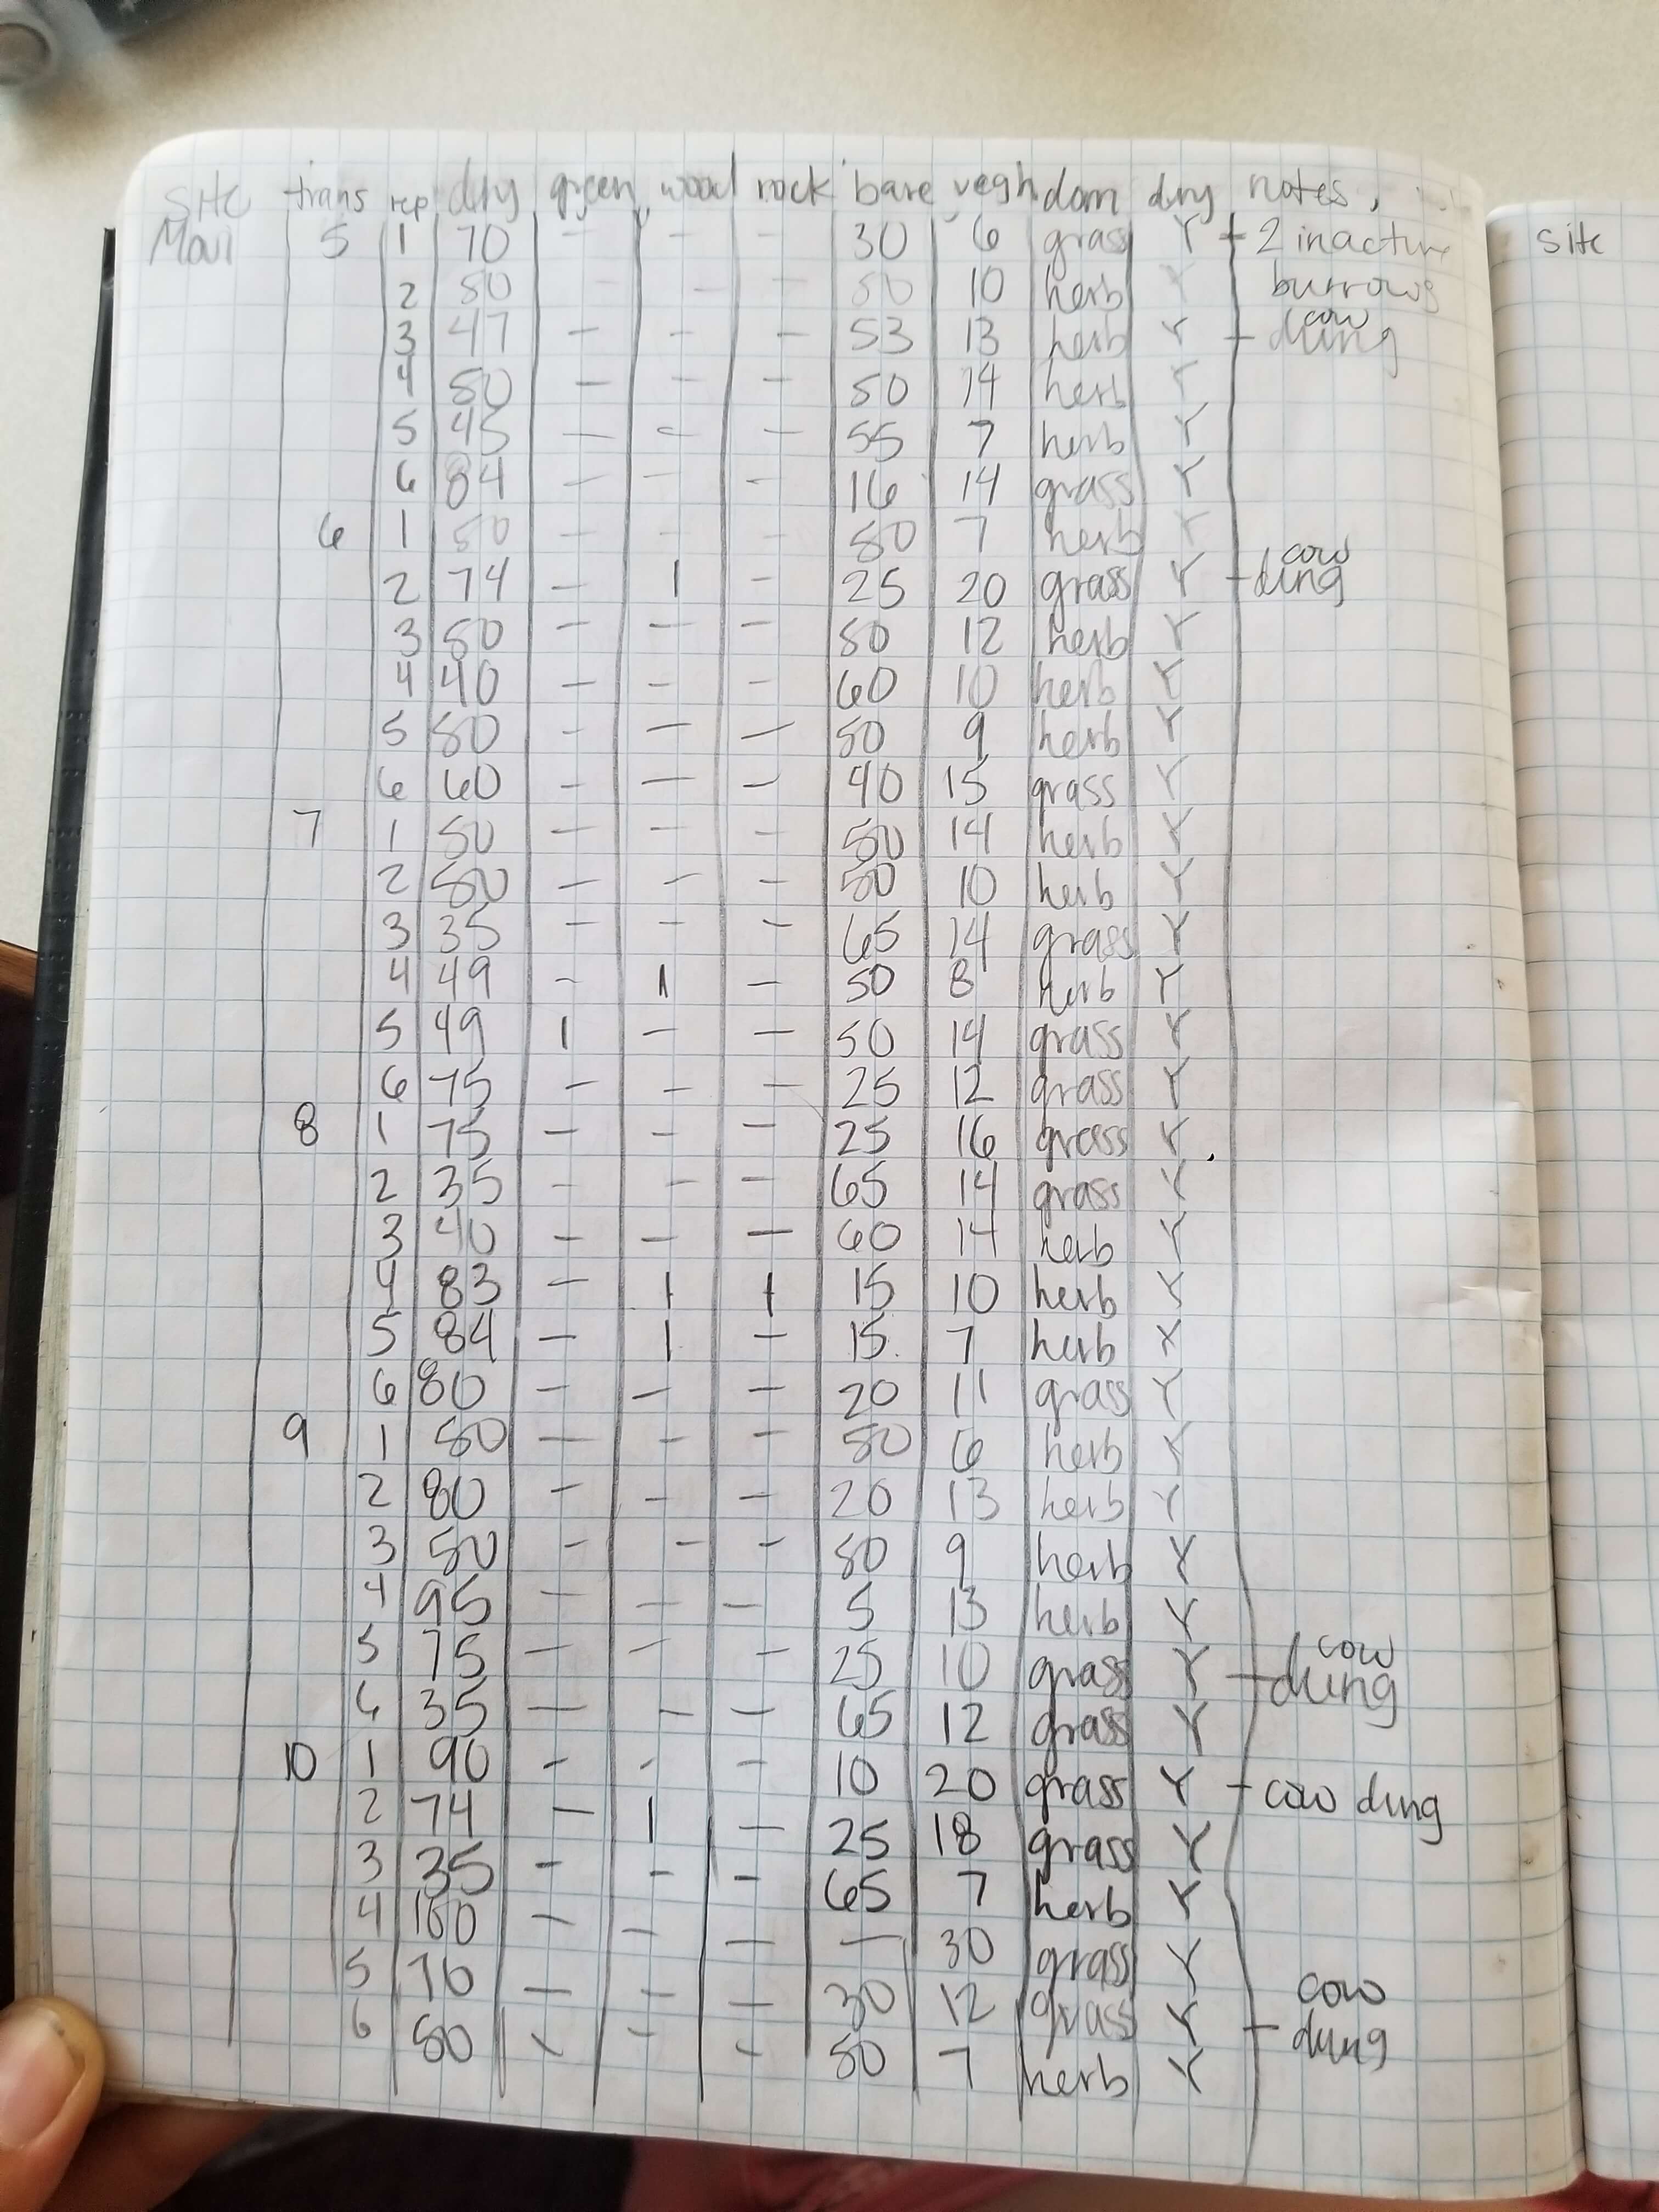 site trans rep dry green wood rock bare vegh dom dry notes,
5 1 70 - - - 30 6 grass Y + 2 inactive
2 50 - - - 50 10 herb Y burrows
3 47 - - - 53 13 herb Y - cow dung
4 50 - - - 50 14 herb Y
5 45 - - - 55 7 herb Y
6 84 - - - 16 14 grass Y
6 1 50 - - - 50 7 herb Y
2 74 - 1 - 25 20 grass Y - cow dung
3 50 - - - 50 12 herb Y
4 40 - - - 60 10 herb Y
5 50 - - - 50 9 herb Y
6 60 - - - 40 15 grass Y
7 1 50 - - - 50 14 herb Y
2 50 - - - 50 10 herb Y
3 35 - - - 65 14 grass Y
4 49 - 1 - 50 8 herb Y
5 49 1 - - 50 14 grass Y
6 75 - - - 25 12 grass Y
8 1 75 - - - 25 16 grass Y
2 35 - - - 65 14 grass Y
3 40 - - - 60 14 herb Y
4 83 - 1 1 15 10 herb Y
5 84 - 1 - 15 7 herb Y
6 80 - - - 20 11 grass Y
9 1 50 - - - 50 6 herb Y
2 80 - - - 20 13 herb Y
3 50 - - - 50 9 herb Y
4 95 - - - 5 13 herb Y
5 75 - - - 25 10 grass Y - cow dung
6 35 - - - 65 12 grass Y
10 1 90 - - - 10 20 grass Y - cow dung
2 74 - 1 - 25 18 grass Y
3 35 - - - 65 7 herb Y
4 100 - - - - 30 grass Y
5 70 - - - 30 12 grass Y - cow dung
6 50 - - - 50 7 herb Y
site